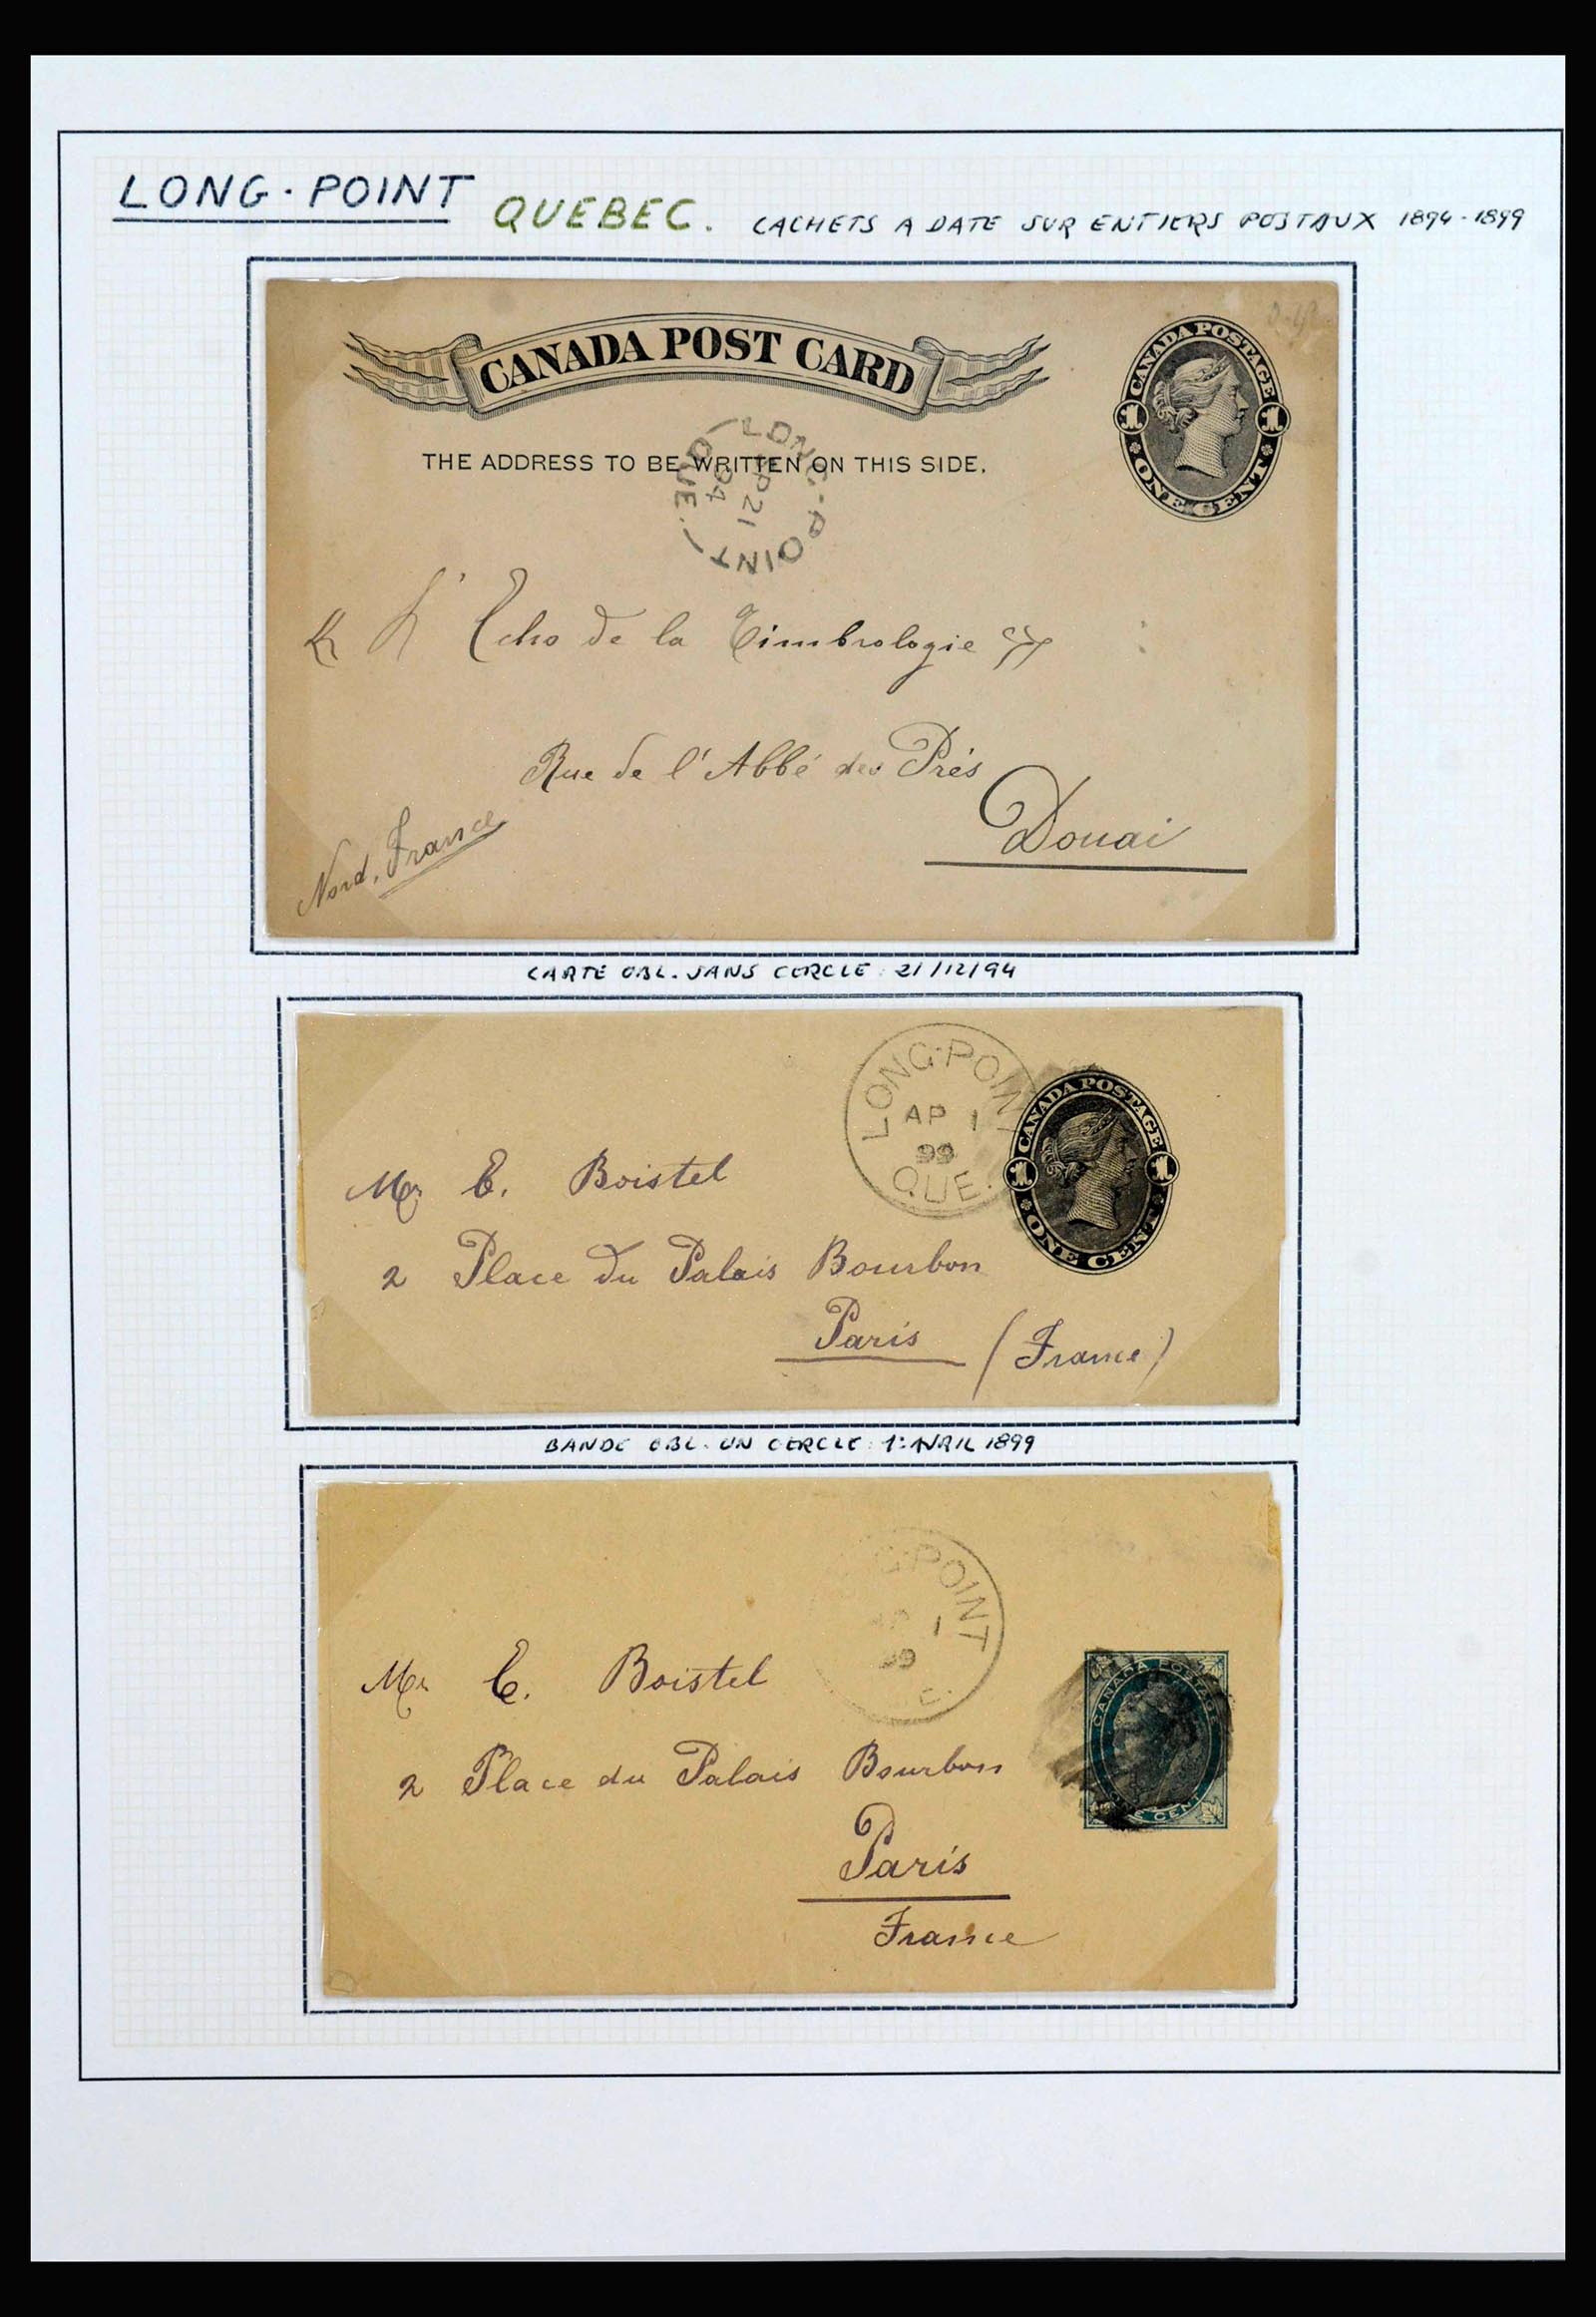 LONG-POINT QUEBEC. CACHETS A DATE SUR ENTIERS POSTAUX 1894-1899
CANADA POST CARD
CANADA POSTAGE
1 1
ONE CENT
THE ADDRESS TO BE WRITTEN ON THIS SIDE.
LONG-POINT
AP 21
94
QUE.
L'Echo de la Timbrologie
Rue de l'Abbé des Prés
Douai
Nord, France
CARTE OBL. SANS CERCLE: 21/12/94
LONG-POINT
AP 1
99
QUE.
CANADA POSTAGE
1 1
ONE CENT
Mr E. Boistel
2 Place du Palais Bourbon
Paris (France)
BANDE OBL. UN CERCLE: 1: AVRIL 1899
G-POINT
AP 1
99
E.
CANADA POSTAGE
CENT
Mr E. Boistel
2 Place du Palais Bourbon
Paris
France